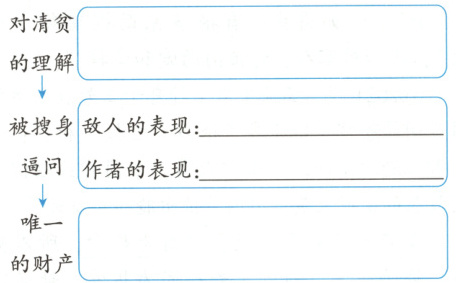 对清贫
的理解
被搜身
逼问
敌人的表现:
作者的表现:
唯一
的财产